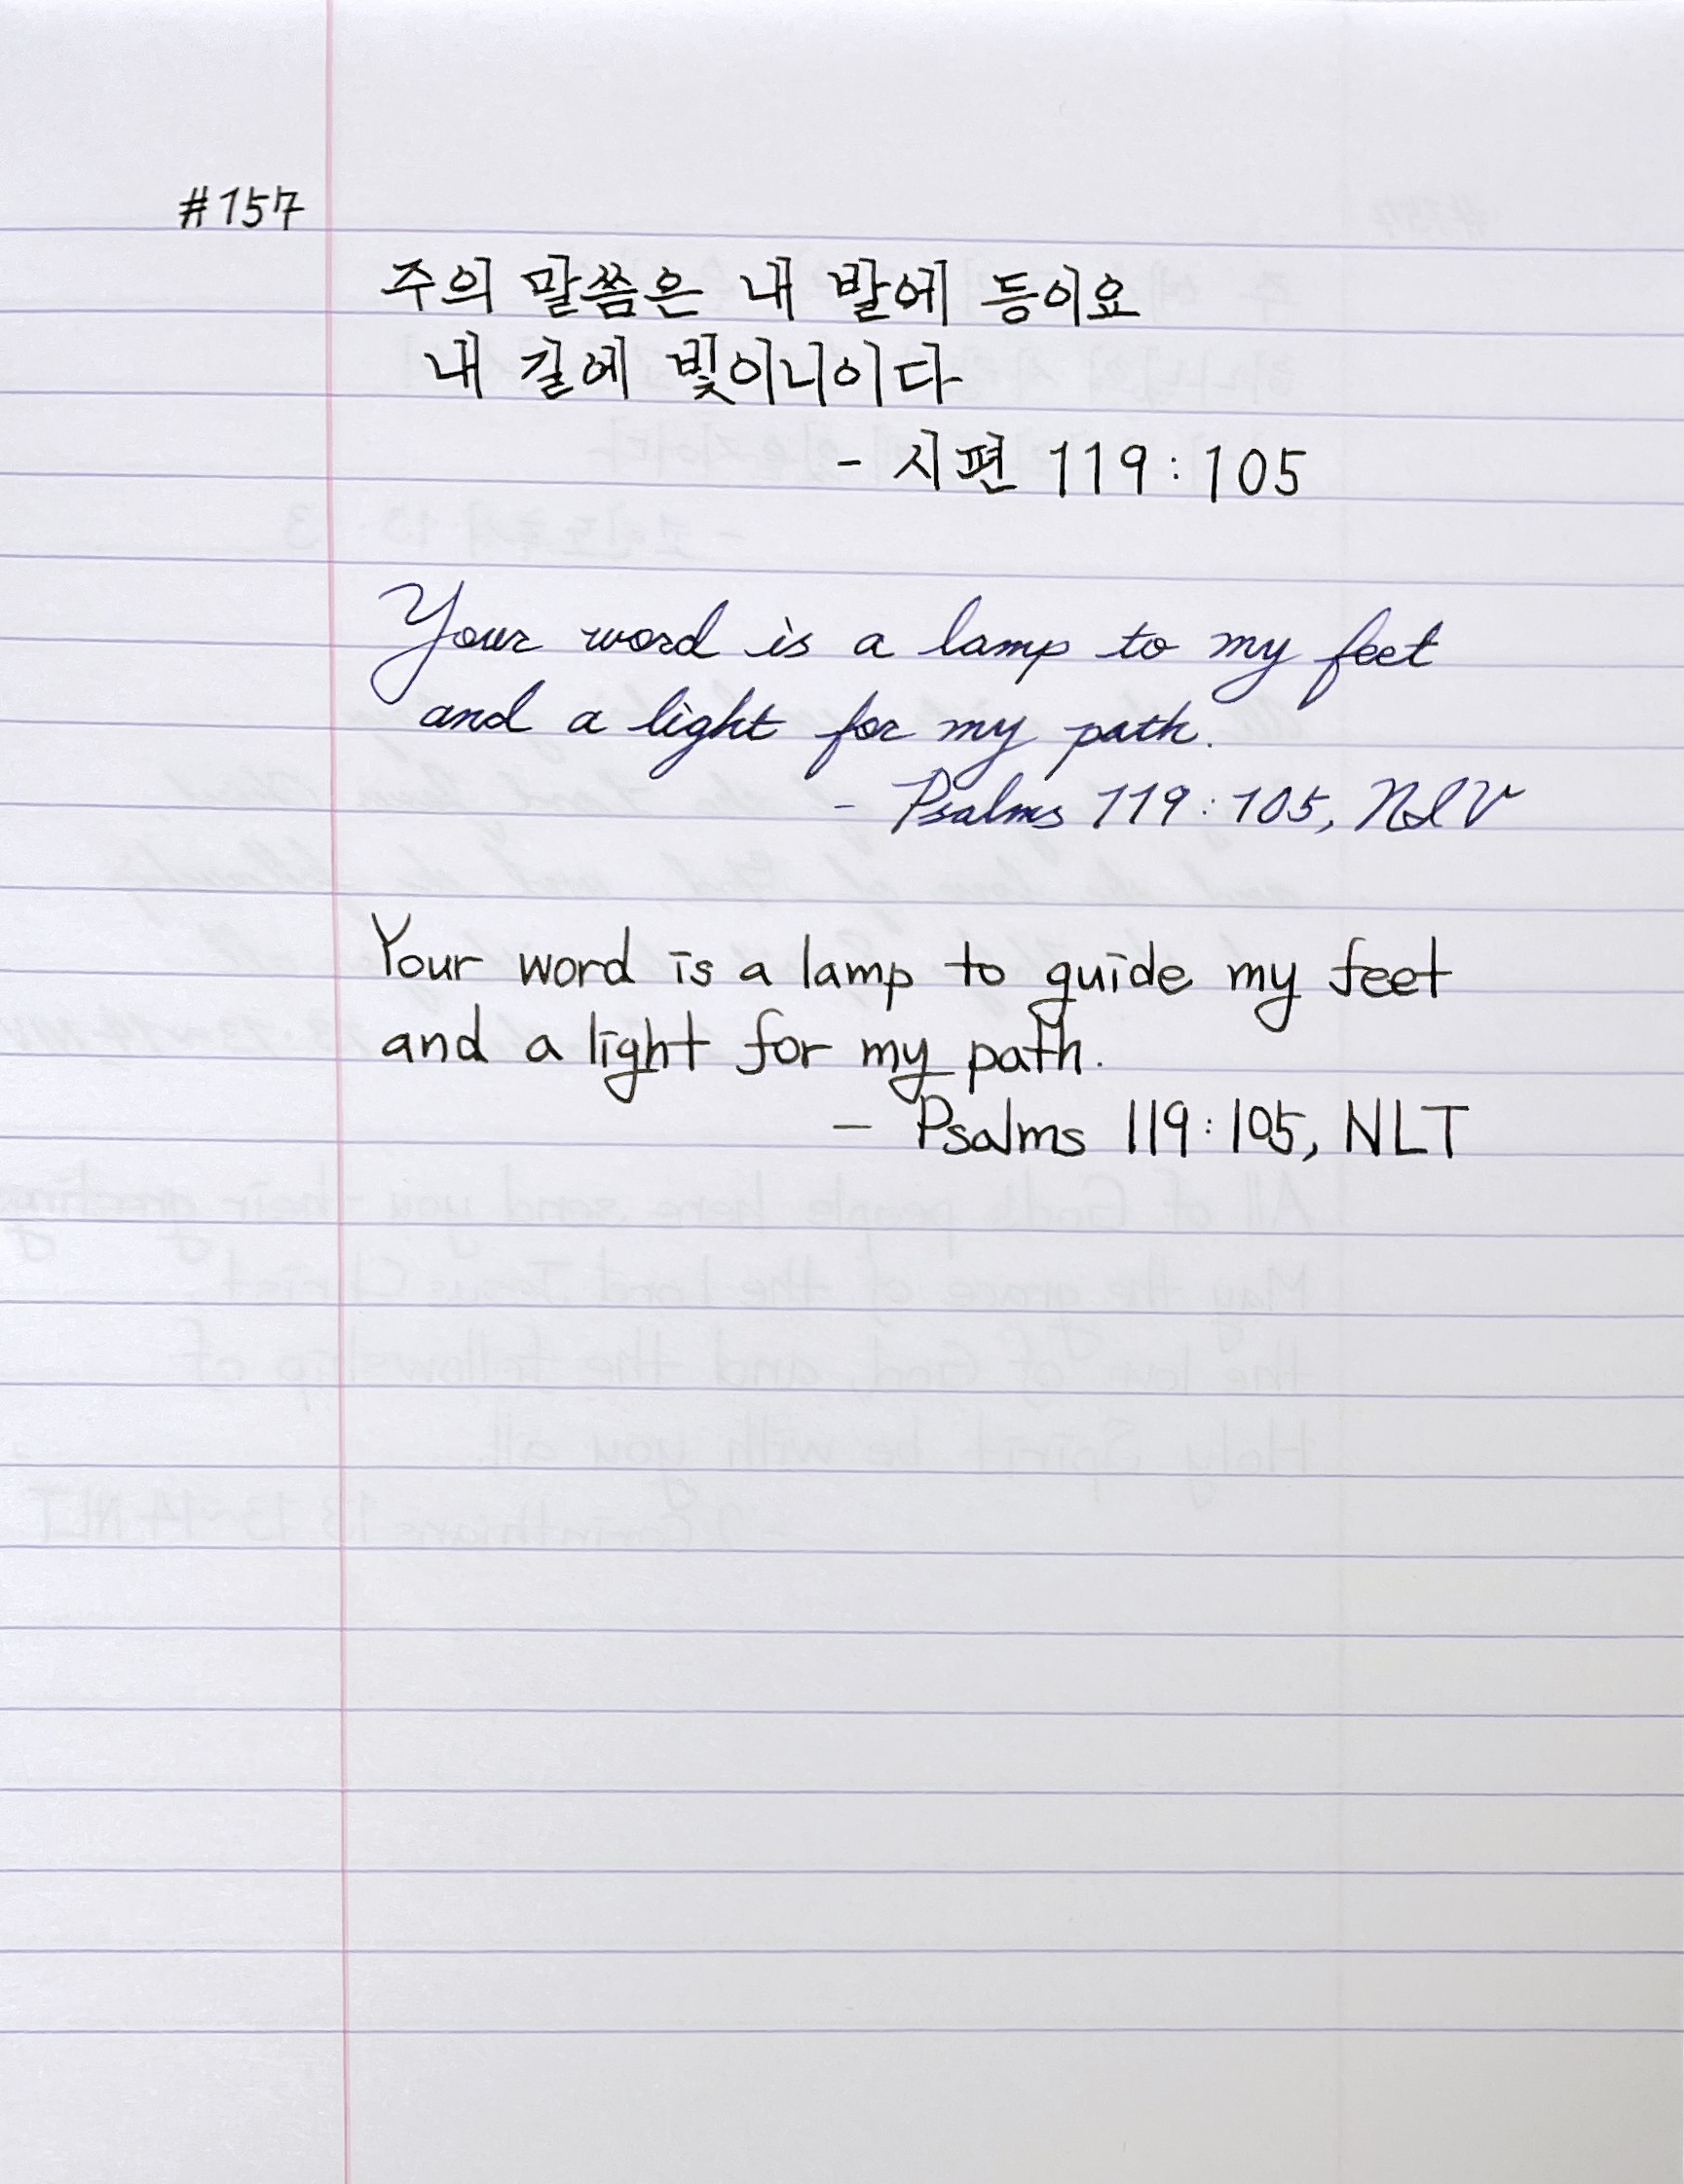 #157
주의 말씀은 내 발에 등이요
내 길에 빛이니이다
- 시편 119:105
Your word is a lamp to my feet
and a light for my path.
- Psalms 119:105, NIV
Your word is a lamp to guide my feet
and a light for my path.
- Psalms 119:105, NLT